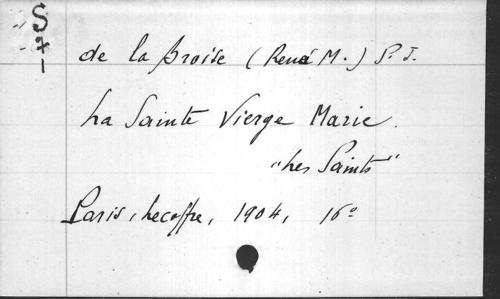 S
7-1
de la Broise (René M.) S.J.
La Sainte Vierge Marie.
"Les Saints"
Paris, Lecoffre, 1904, 16°